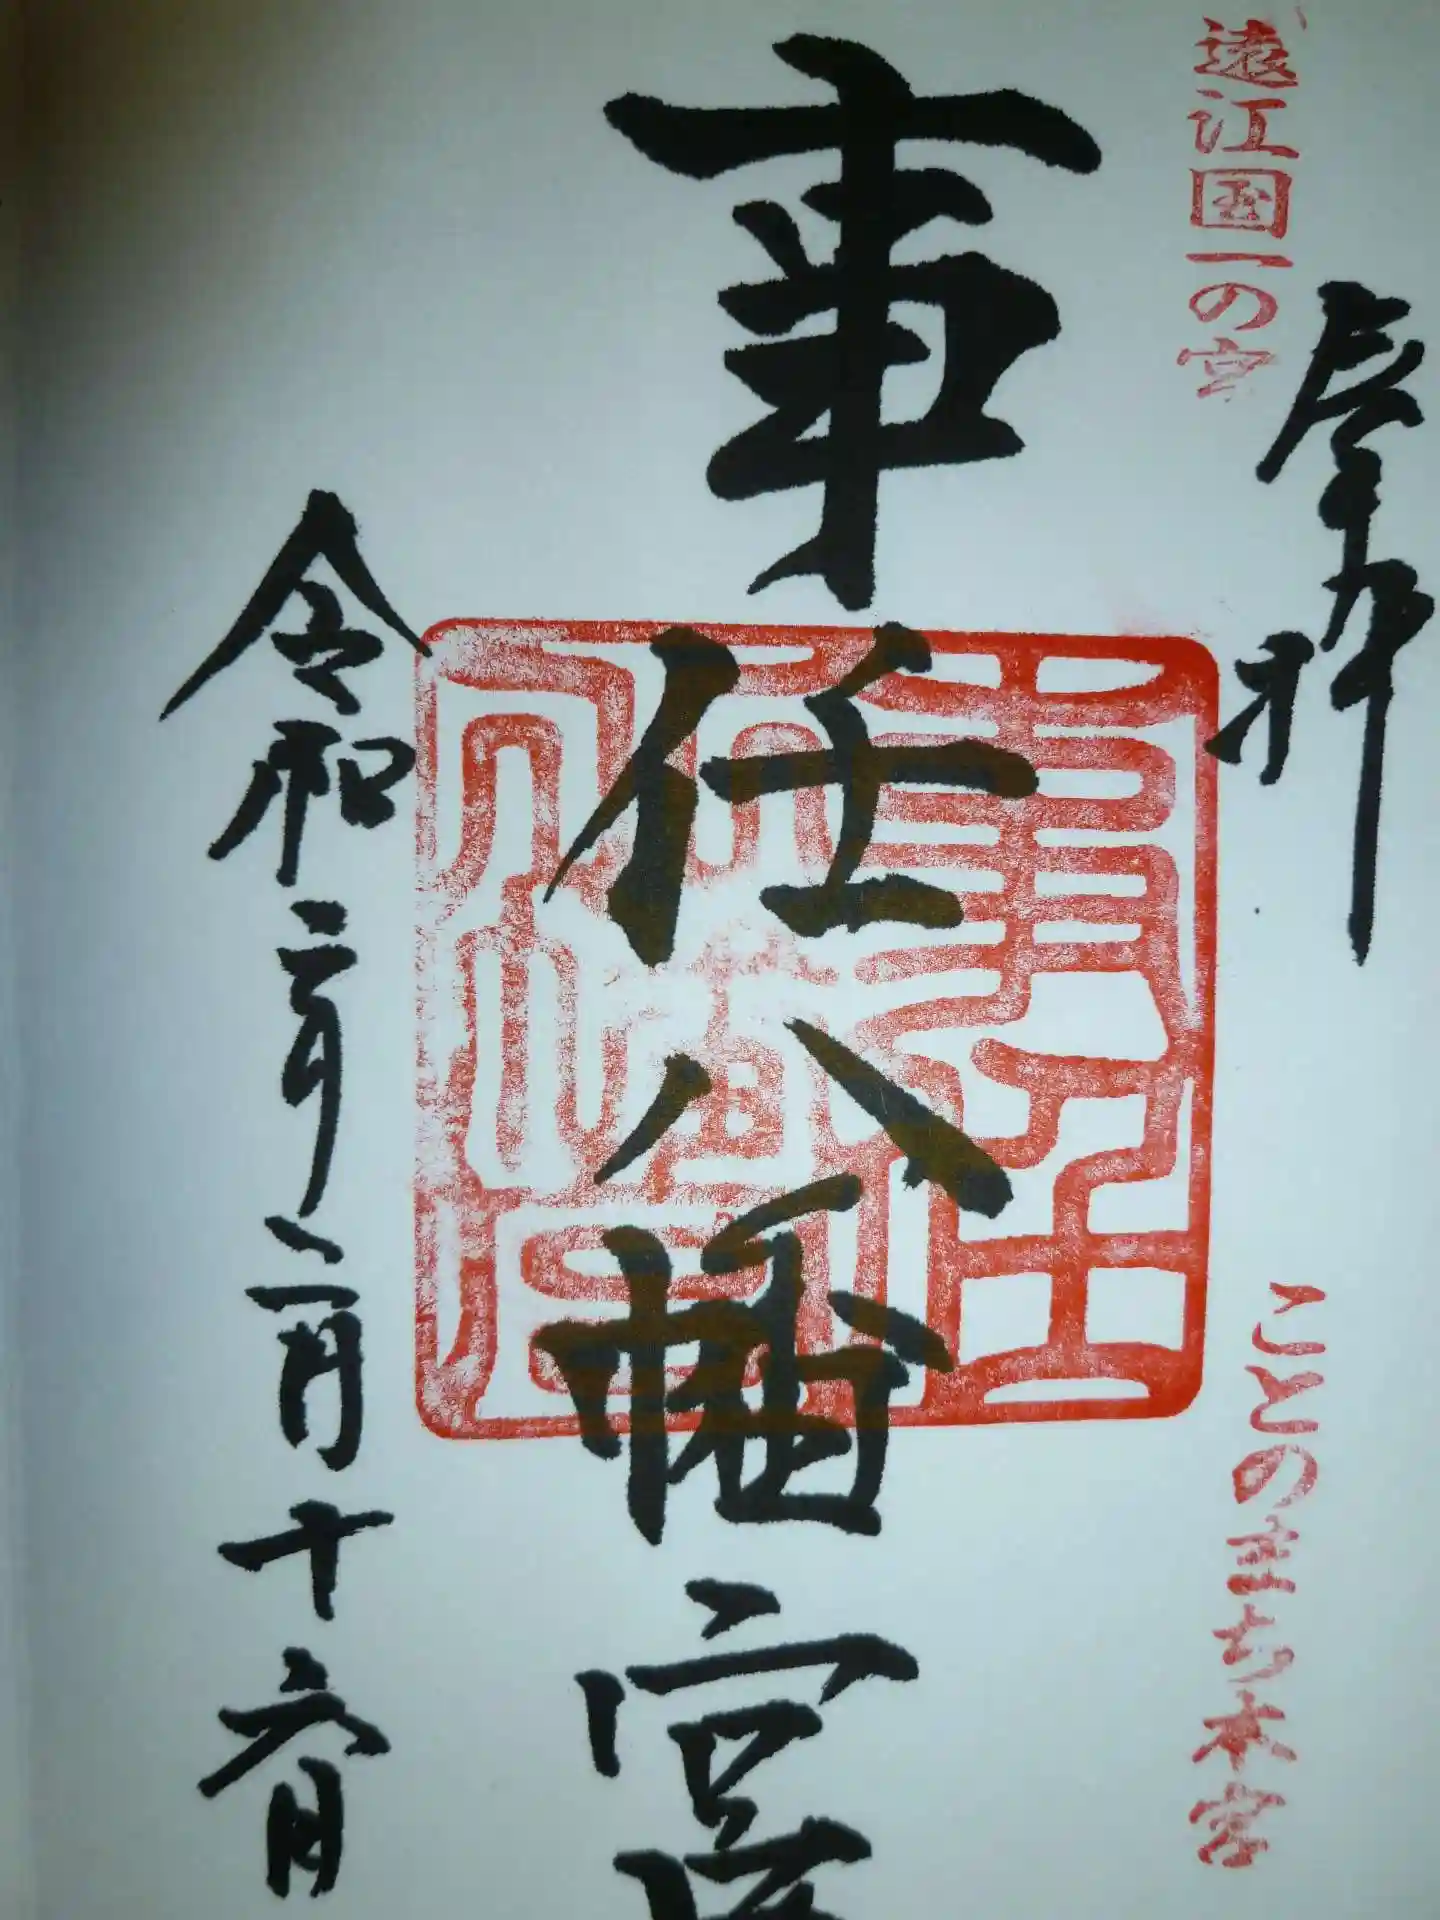 奉拝
遠江国一の宮
ことのまち本宮
事任八幡宮
令和二年二月十六日